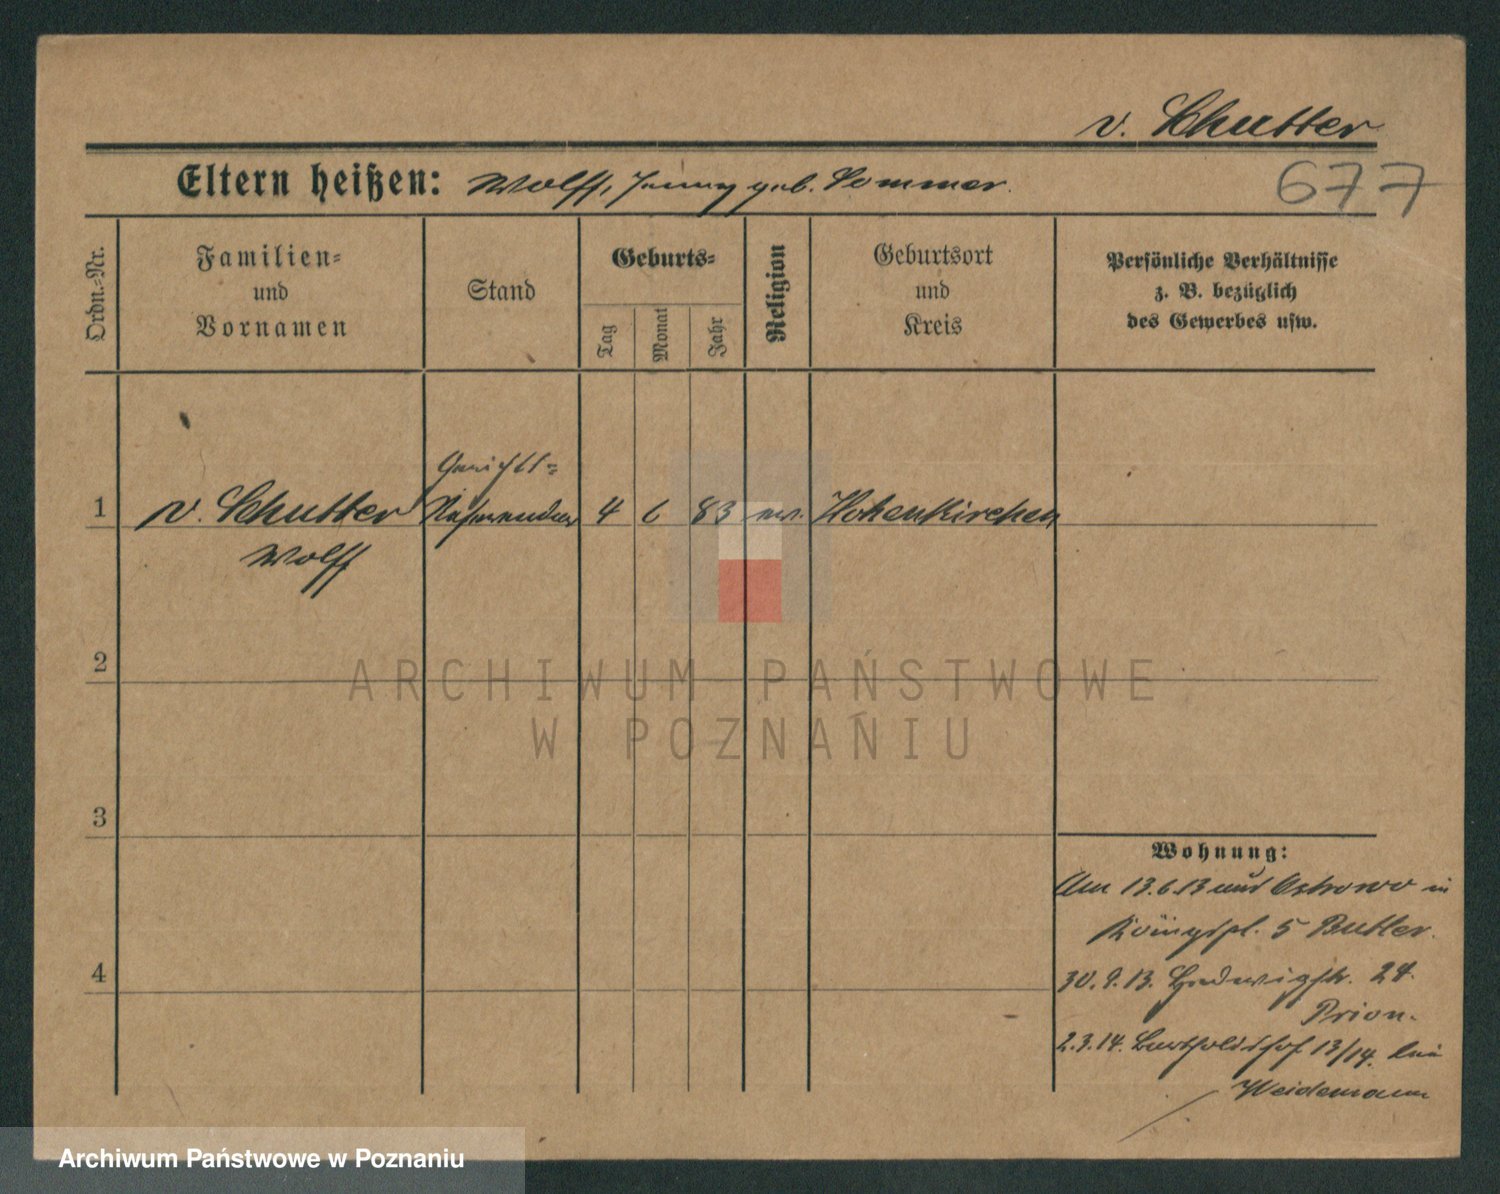 v. Schutter
Eltern heißen: Wolff, Jenny geb. Sommer.
677
Ordn.-Nr.
Familien-
und
Vornamen
Stand
Geburts-
Tag
Monat
Jahr
Religion
Geburtsort
und
Kreis
Persönliche Verhältnisse
z. B. bezüglich
des Gewerbes usw.
Gerichts-
1 v. Schutter Referendar 4 6 83 ev. Hohenkirchen
Wolff
2
3
4
Wohnung:
Am 13.6.13 aus Ostrowo in
Königspl. 5 Butler.
30.9.13. Hedwigstr. 24.
Prion.
2.3.14. Bertholdshof 13/14. bei
Weidemann
ARCHIWUM PAŃSTWOWE
W POZNANIU
Archiwum Państwowe w Poznaniu